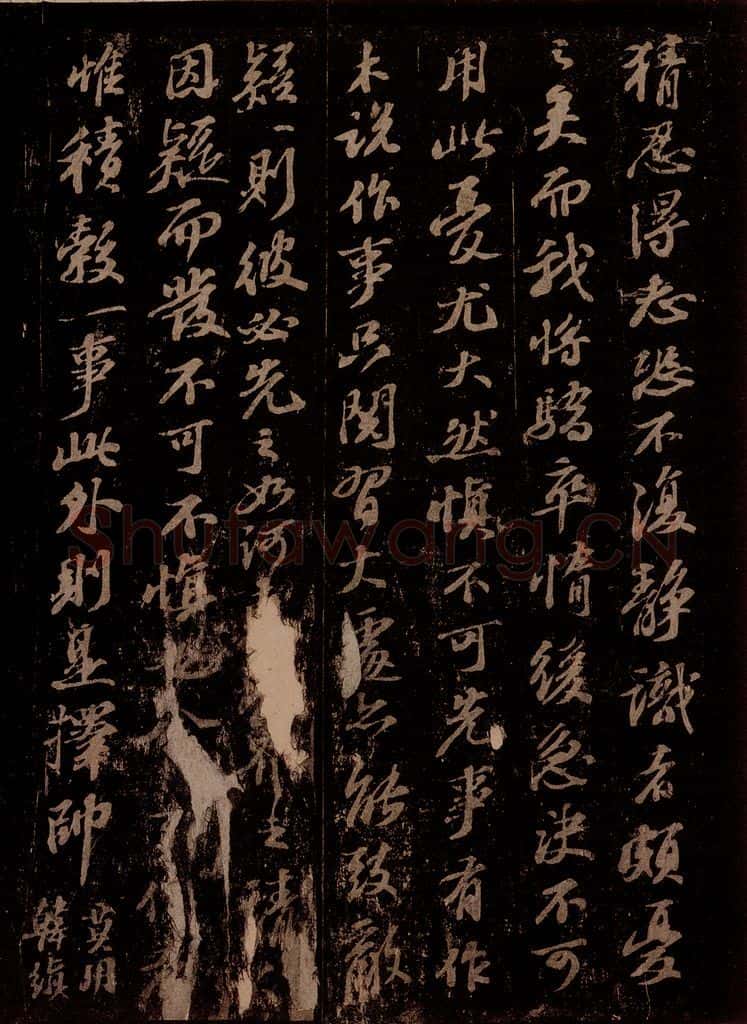 猜忍得志恐不復静識者頗憂
之矣而我將驕卒惰後急决不可
用此憂尤大然慎不可先事有作
未說作事只閱習大處亦能致敵
疑一則彼必先之如河
因疑而發不可不慎也
惟積穀一事此外則是擇帥
莫用
韓縝
Shufawang.CN